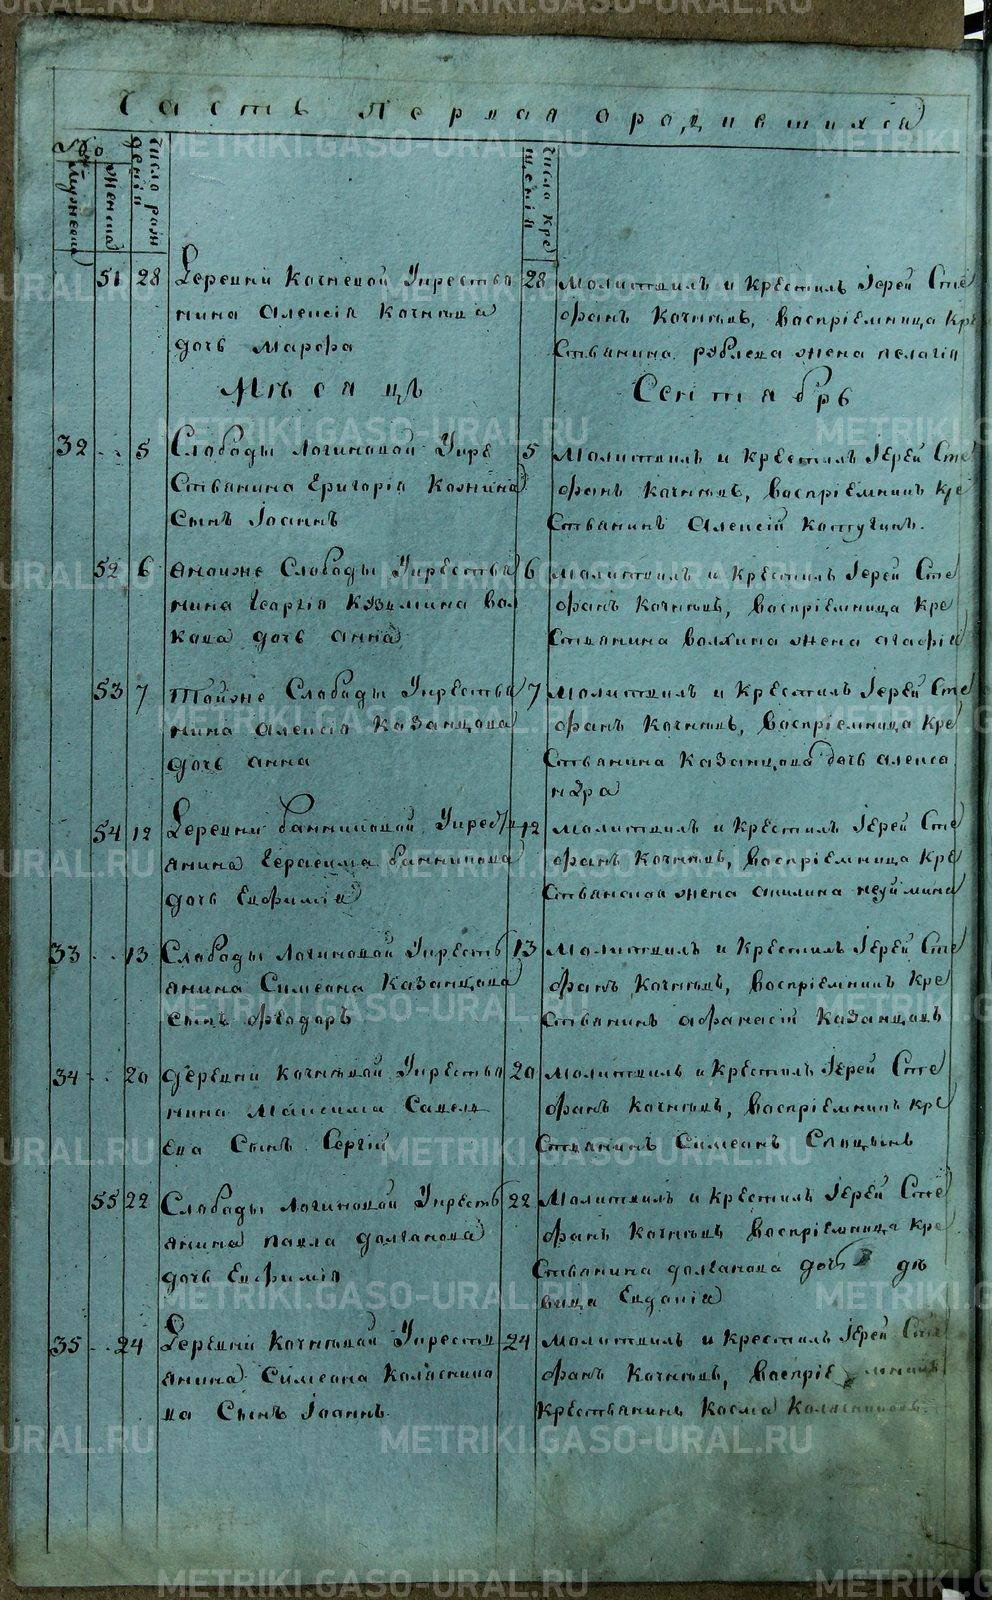 Часть Первая о родившихся
№
Мужеска
Женска
Число рож
денія
Число кре
щенія
51 28 Деревни Кочневой Крестья
нина Алексія Кочнева
дочь Марфа
28 Молитвилъ и Крестилъ Іерей Сте
фанъ Кочневъ, Воспріемница Кре
стьянина Рублева жена Пелагія
Мѣсяцъ Сентябрь
32 5 Слободы Логиновой Кре
стьянина Григорія Кожина
Сынъ Іоаннъ
5 Молитвилъ и Крестилъ Іерей Сте
фанъ Кочневъ, Воспріемникъ Кре
стьянинъ Алексій Каптугинъ.
52 6 Слободы Крестья
нина Георгія Кузмина Вол
кова дочь Анна
6 Молитвилъ и Крестилъ Іерей Сте
фанъ Кочневъ, Воспріемница Кре
стьянина жена Агафія
53 7 Тойже Слободы Крестья
нина Алексія Казанцова
дочь Анна
7 Молитвилъ и Крестилъ Іерей Сте
фанъ Кочневъ, Воспріемница Кре
стьянина Казанцова дочь Алекса
ндра
54 12 Деревни Банниковой Крест
янина Герасима Банникова
дочь Евфимія
12 Молитвилъ и Крестилъ Іерей Сте
фанъ Кочневъ, Воспріемница Кре
стьянская жена Акилина Неуймина
33 13 Слободы Логиновой Кресть
янина Симеона Казанцова
сынъ Феодоръ
13 Молитвилъ и Крестилъ Іерей Сте
фанъ Кочневъ, Воспріемникъ Кре
стьянинъ Афанасій Казанцовъ
34 20 Деревни Кочневой Крестья
нина Максима Савель
ева Сынъ Сергій
20 Молитвилъ и Крестилъ Іерей Сте
фанъ Кочневъ, Воспріемникъ Кре
стьянинъ Симеонъ
55 22 Слободы Логиновой Кресть
янина Павла Долганова
дочь Евфимія
22 Молитвилъ и Крестилъ Іерей Сте
фанъ Кочневъ Воспріемница Кре
стьянина Долганова дочь дѣ
вица Евдокія
35 24 Деревни Кочневой Крестья
янина Симеона Коляснико
ва Сынъ Іоаннъ
24 Молитвилъ и Крестилъ Іерей Сте
фанъ Кочневъ, Воспріемникъ
Крестьянинъ Косма Колясниковъ.
METRIKI.GASO-URAL.RU